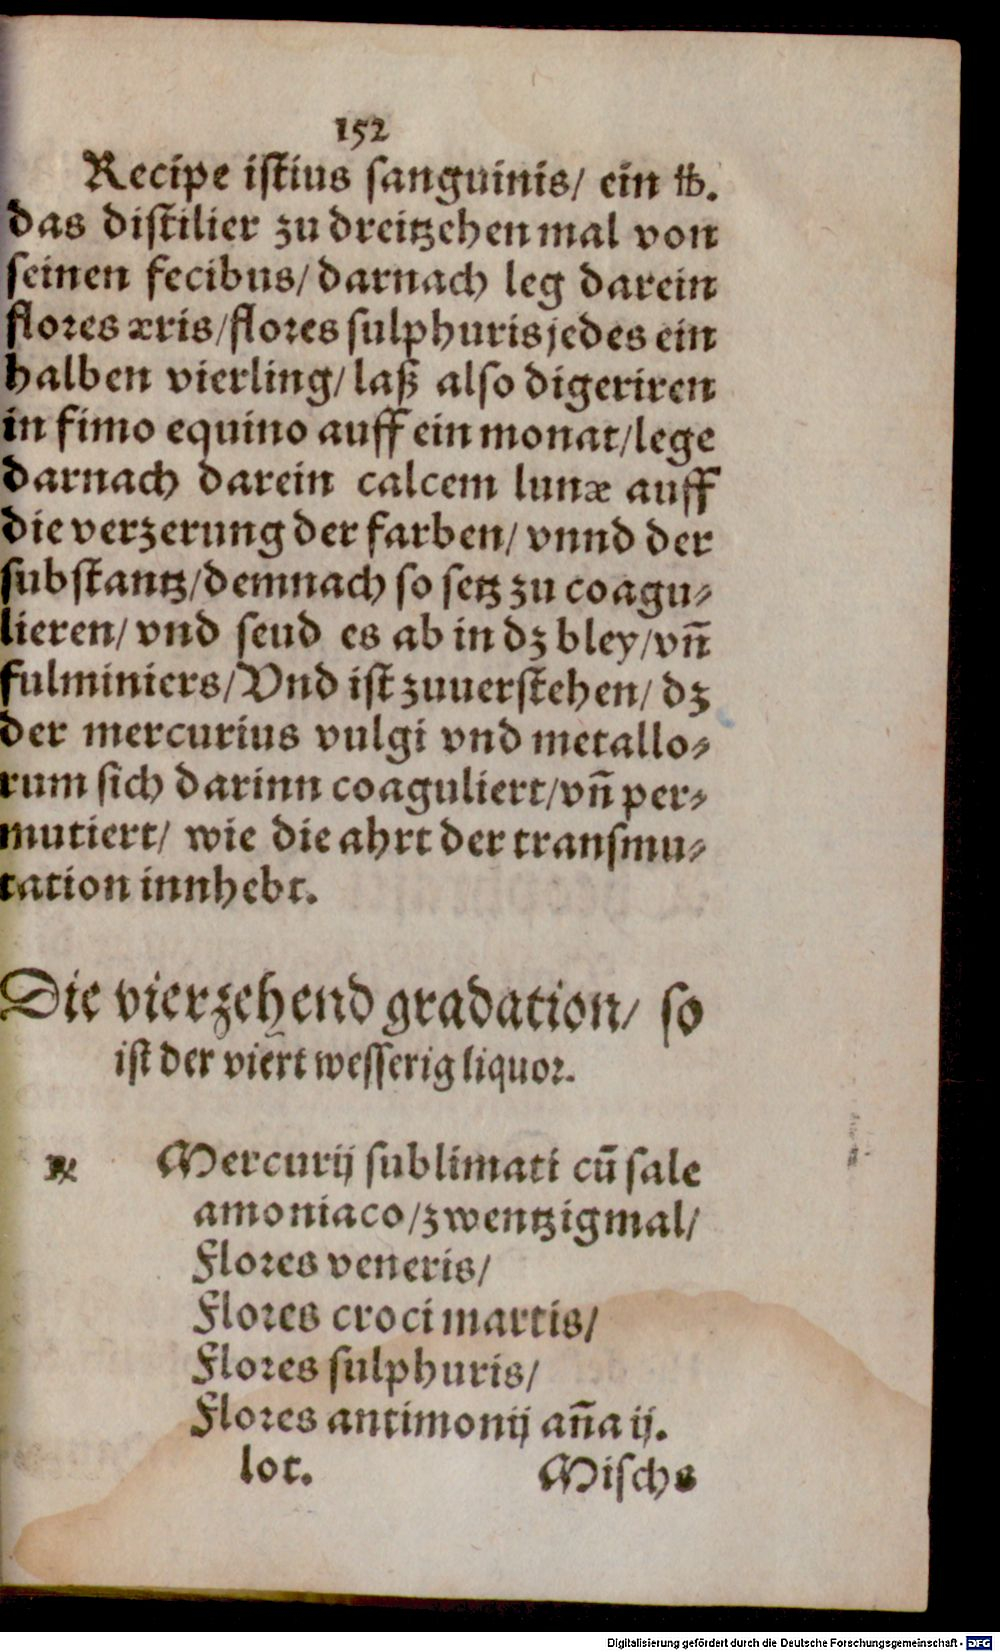 152
Recipe istius sanguinis/ ein ℔.
das distilier zu dreitzehen mal von
seinen fecibus/ darnach leg darein
flores æris/flores sulphuris jedes ein
halben vierling/ laß also digeriren
in fimo equino auff ein monat/lege
darnach darein calcem lunæ auff
die verzerung der farben/ vnnd der
substantz/demnach so setz zu coagu⸗
lieren/ vnd seud es ab in dz bley/vn̄
fulminiers/Vnd ist zuuerstehen/ dz
der mercurius vulgi vnd metallo⸗
rum sich darinn coaguliert/vn̄ per⸗
mutiert/ wie die ahrt der transmu⸗
tation innhebt.
Die vierzehend gradation/ so
ist der viert wesserig liquor.
℞ Mercurij sublimati cū sale
amoniaco/zwentzigmal/
Flores veneris/
Flores croci martis/
Flores sulphuris/
Flores antimonij an̄a ij.
lot. Mischs
Digitalisierung gefördert durch die Deutsche Forschungsgemeinschaft - DFG